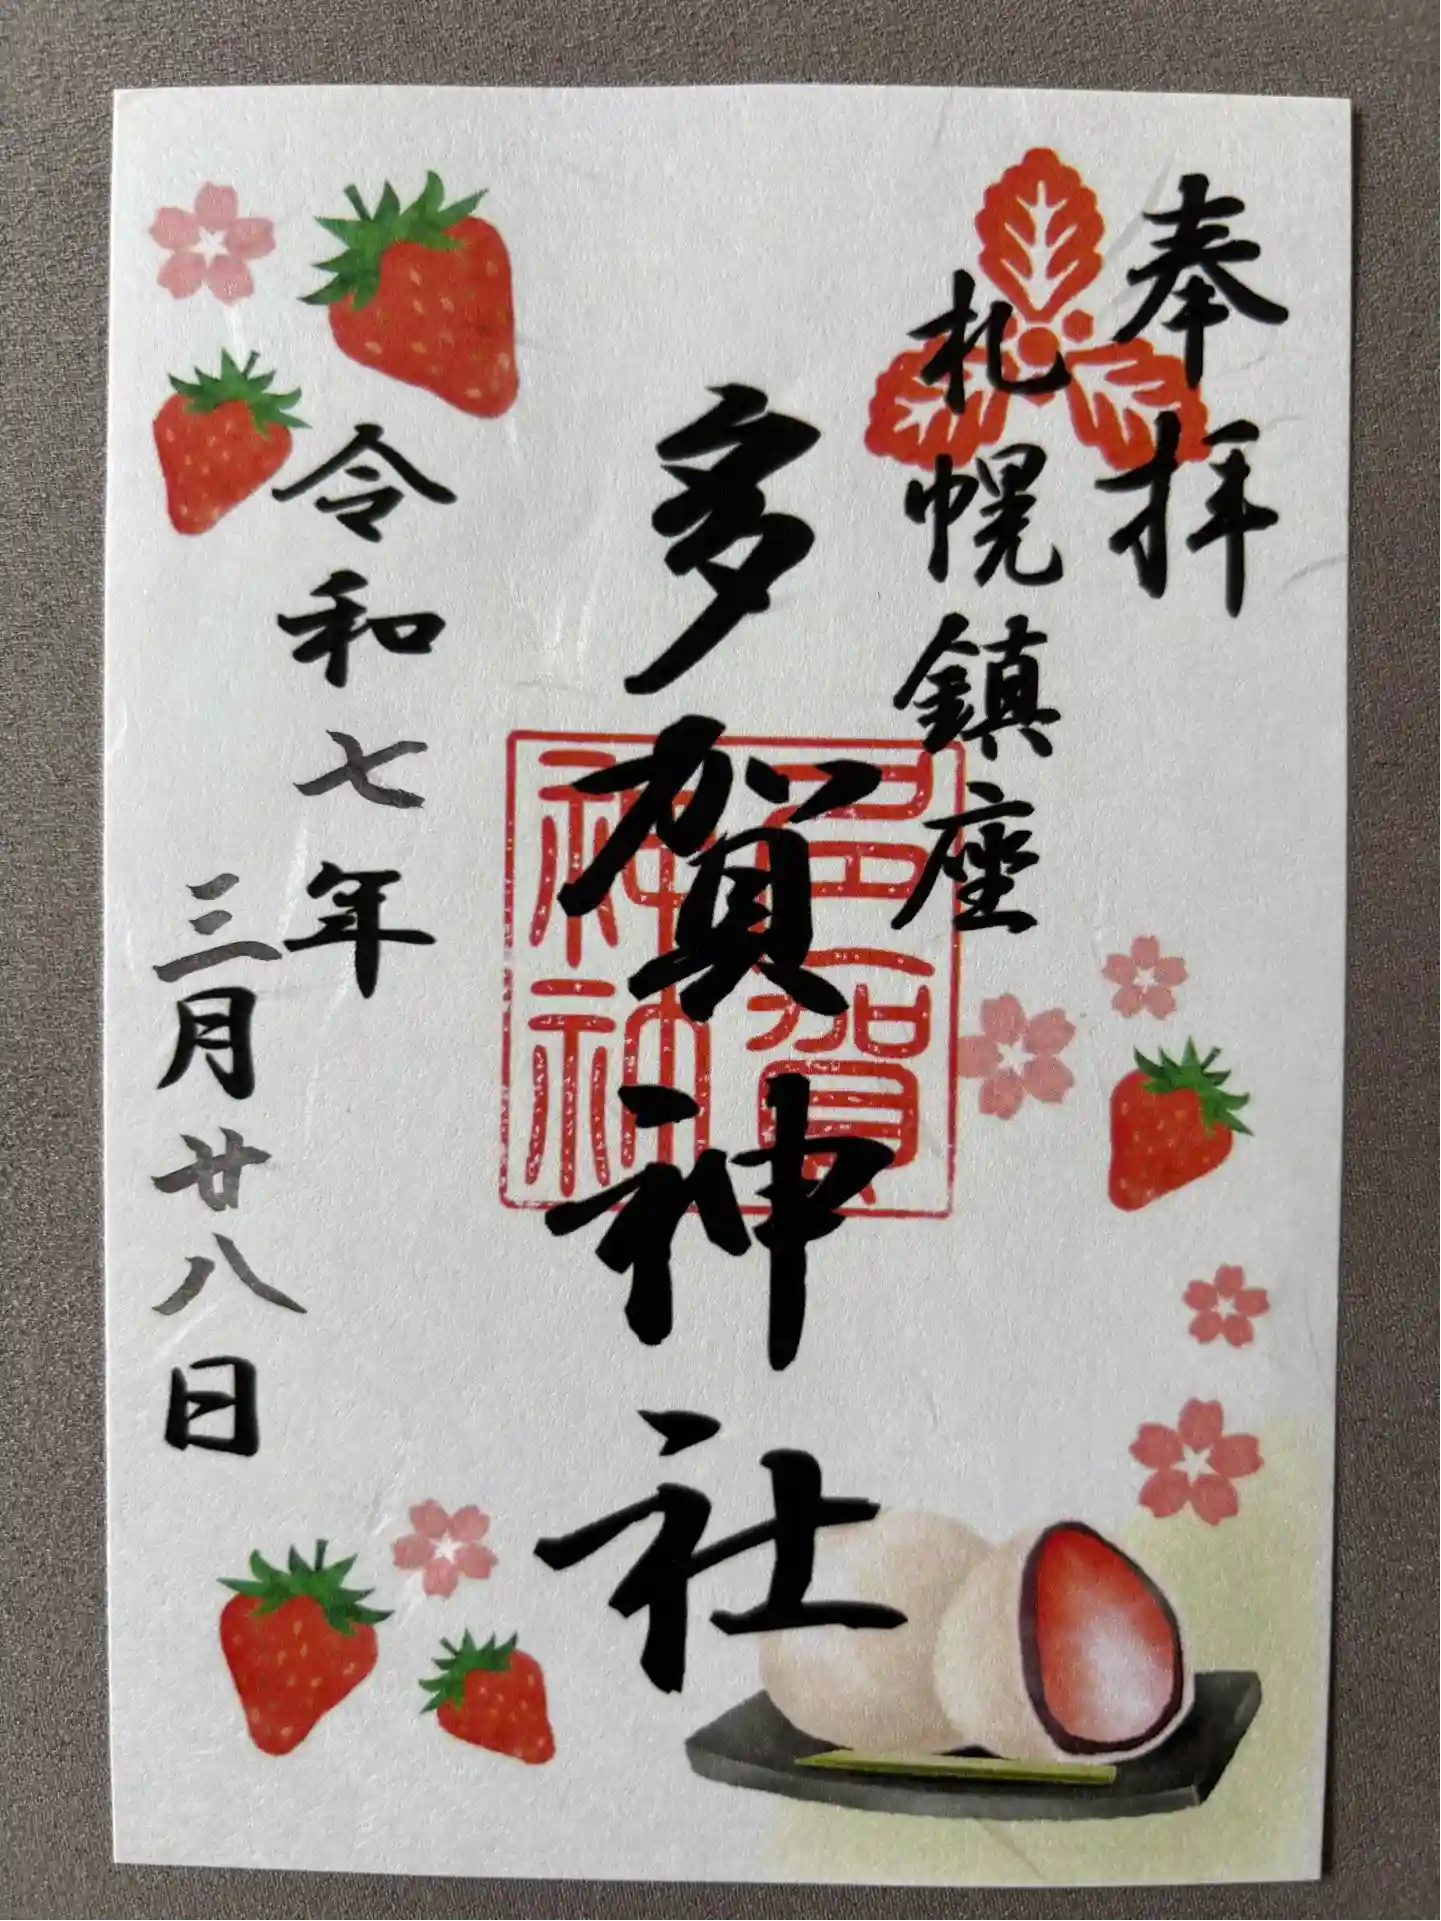 奉拝
札幌鎮座
多賀神社
多賀
神社
令和七年
三月廿八日